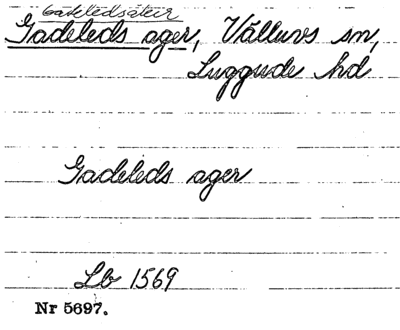 Gateledsåker
Gadeleds ager, Välluvs sn,
Luggude hd
Gadeleds ager
Lb 1569
Nr 5697.